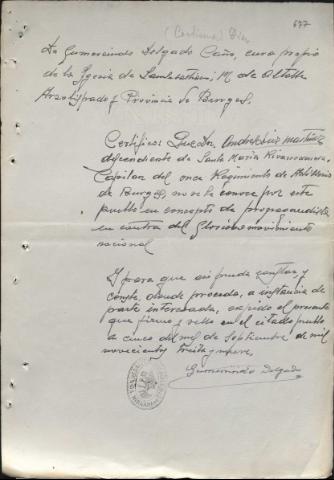 677
Dn Gumersindo Delgado Caño, cura propio
de la Iglesia de San M. de
Arzobispado y Provincia de Burgos.
Certifico: Que Dn. Andrés Diez Martínez
dependiente de Santa María
Capitan del once Regimiento de Artilleria
de Burgos, no se le conoce por este
pueblo en concepto de propagandista
en contra del Glorioso movimiento
nacional
Y para que asi pueda constar y
conste, donde proceda, a instancia de
parte interesada, expido el presente
que firmo y sello en el citado pueblo
a cinco del mes de Septiembre de mil
novecientos treita y nueve.
Gumersindo Delgado